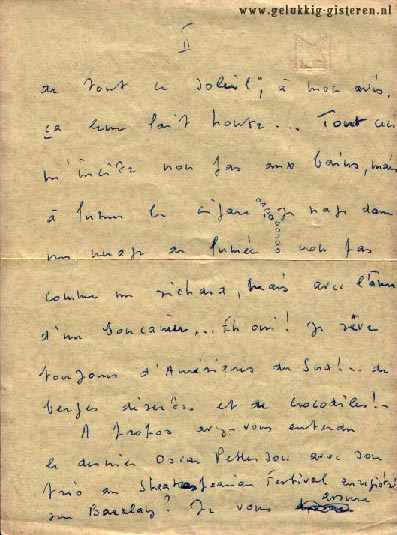 www.gelukkig-gisteren.nl
II
de tout ce soleil ; à mon avis,
ça leur fait honte... Tout ceci
m'incite non pas aux bains, mais
à fumer le cigare je nage dans
un nuage de fumée non pas
comme un richard, mais avec l'âme
d'un boucanier,.. Eh oui ! Je rêve
toujours d'Amériques du Sud!.. de
berges désertes et de crocodiles!..
A propos avez-vous entendu
le dernier Oscar Peterson avec son
trio au Shakespearean Festival enregistré
sur Barclay ? Je vous assure